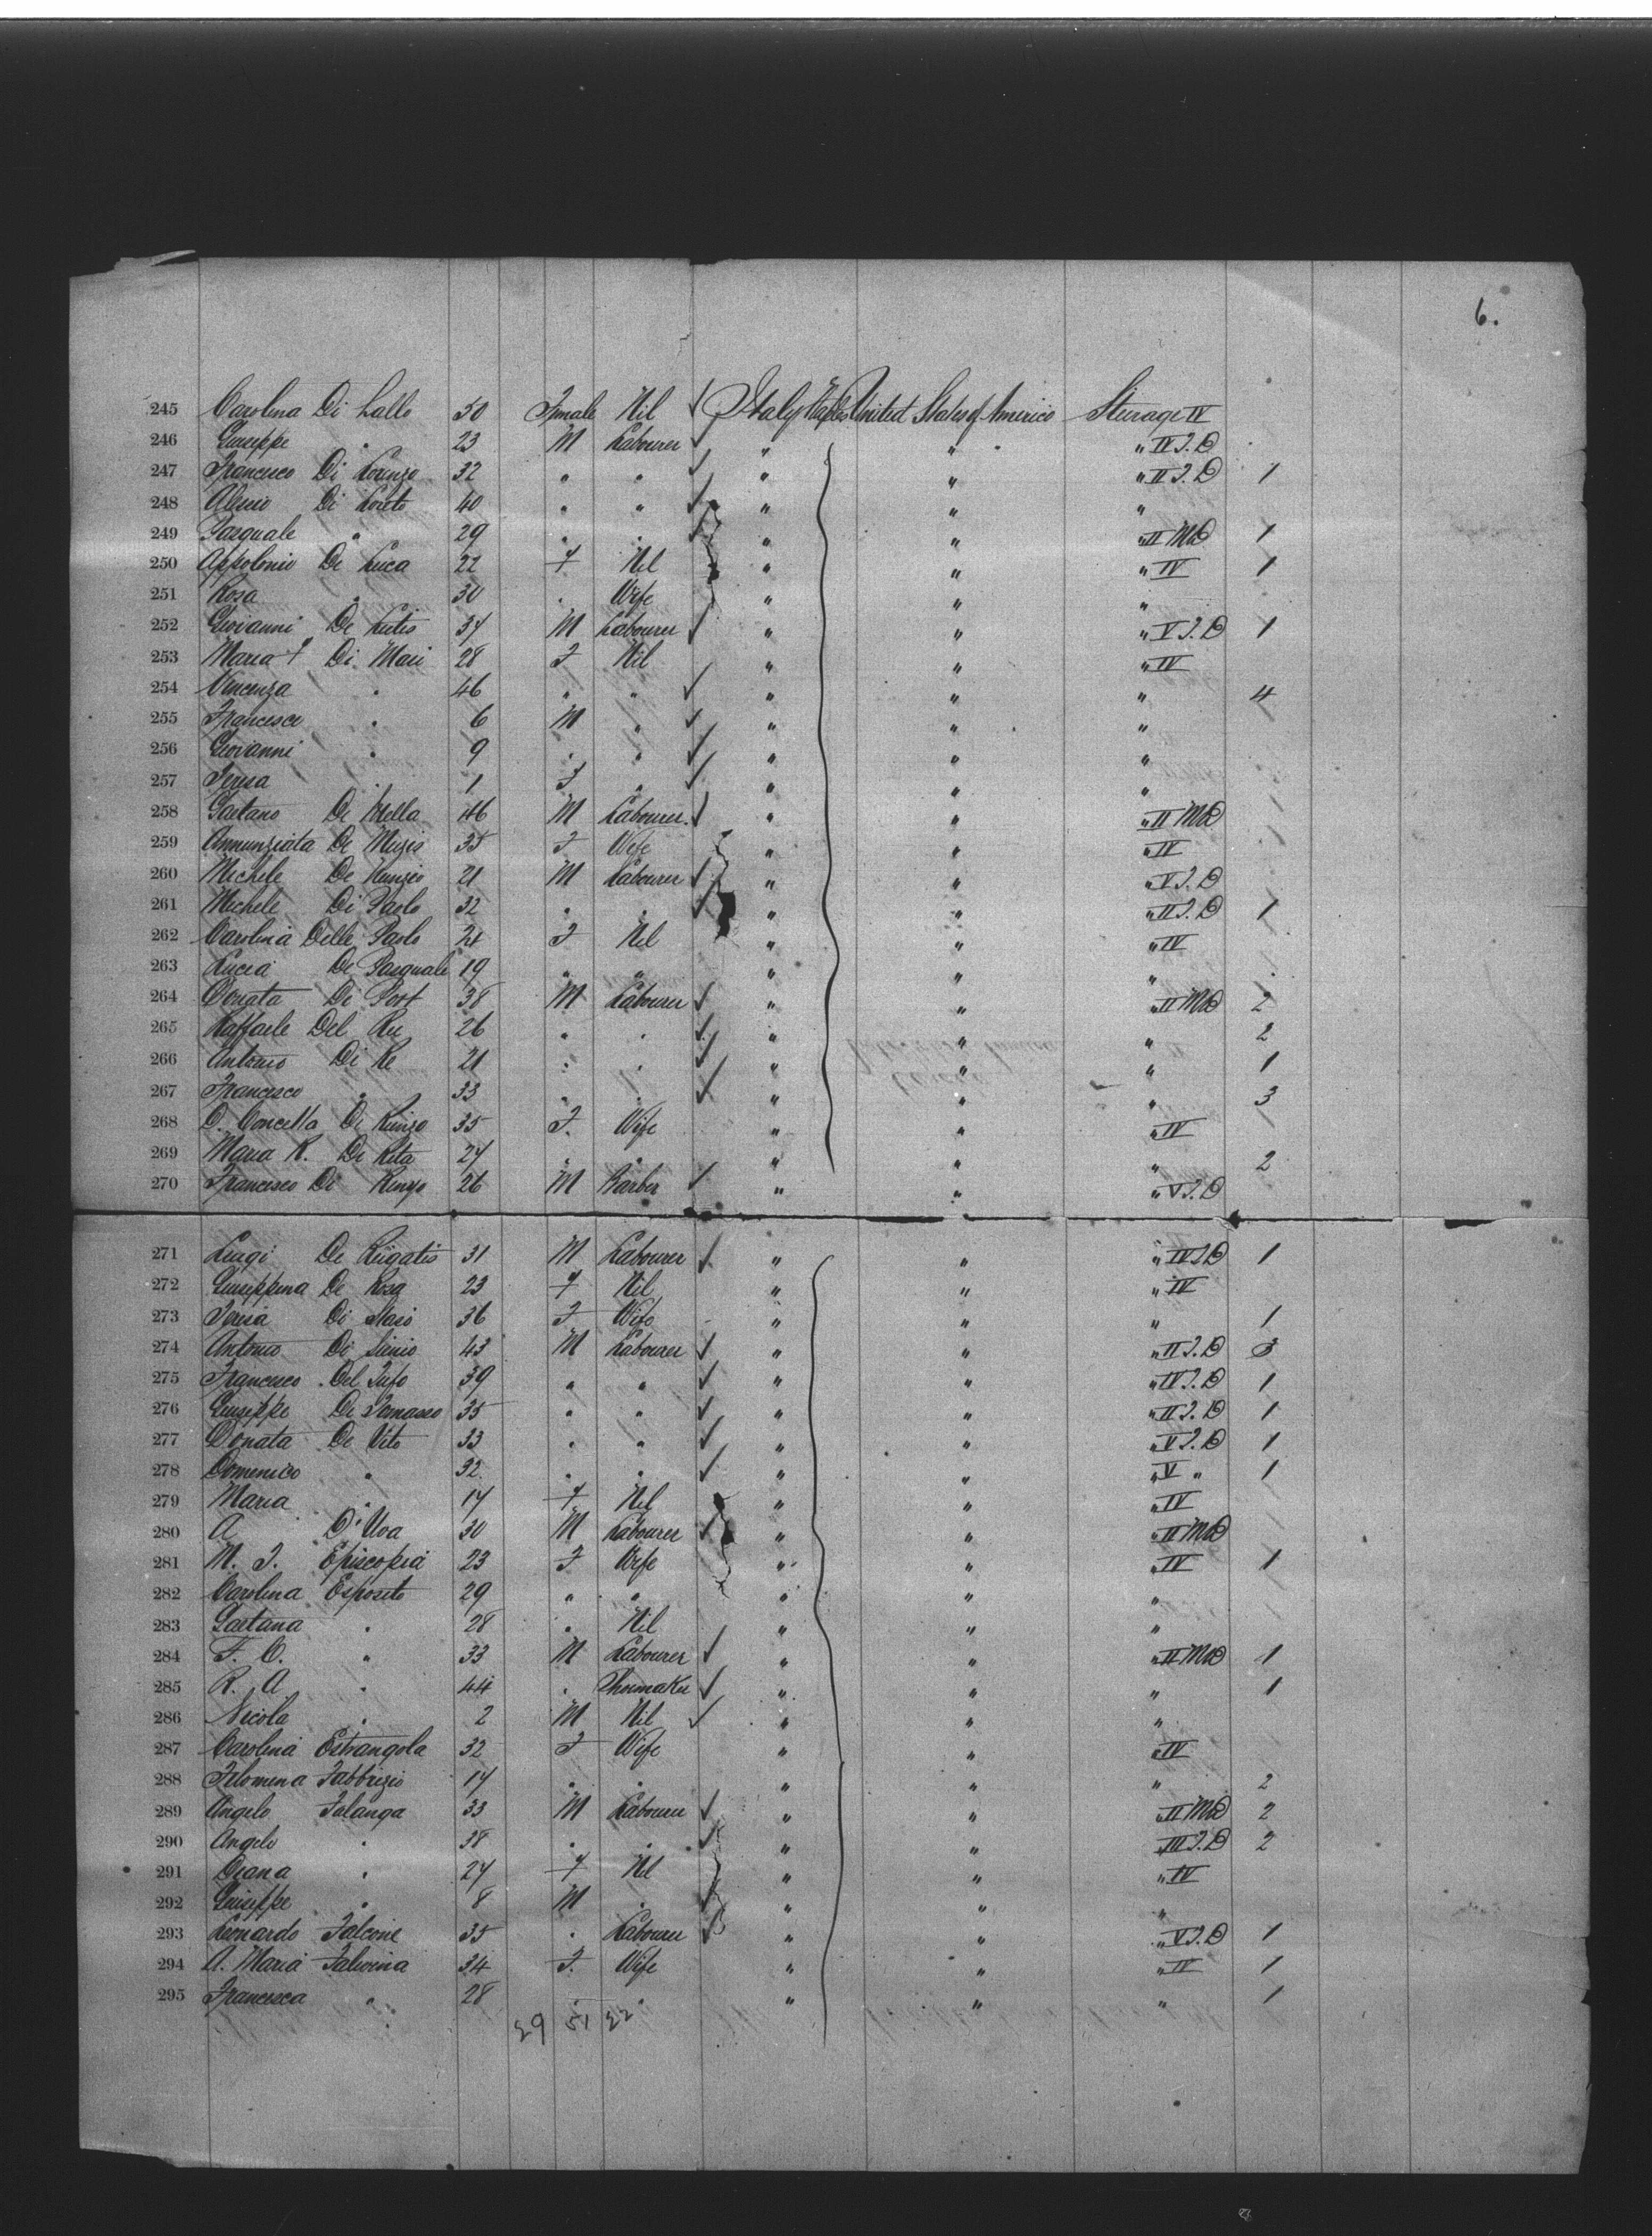 6.
245 Carolina Di Lallo 50 Female Nil ✓ Italy United States of America Steurage IV
246 Giuseppe " 23 M Labourer ✓ " " " IV I.D
247 Francesco Di Lorenzo 32 " " ✓ " " " II I.D 1
248 Alessio Di Loreto 40 " " ✓ " " "
249 Pasquale " 29 " " ✓ " " " II MD 1
250 Appolonio De Luca 22 F Nil " " " IV 1
251 Rosa " 30 " Wife " " "
252 Giovanni De Lutis 34 M Labourer ✓ " " " V I.D 1
253 Maria Di Mari 28 F Nil " " " IV
254 Vincenza " 46 " " ✓ " " " 4
255 Francesco " 6 M " ✓ " " "
256 Giovanni " 9 " " ✓ " " "
257 Teresa " 1 F " ✓ " " "
258 Gaetano Di 46 M Labourer ✓ " " " II MD
259 Annunziata De Muzio 35 F Wife " " " IV
260 Michele De Nunzio 21 M Labourer ✓ " " " V I.D
261 Michele Di Paolo 32 " " ✓ " " " II I.D 1
262 Carolina Delle Paolo 24 F Nil " " " IV
263 Lucia De Pasquale 19 " " " " "
264 Donata Di Port 38 M Labourer ✓ " " " II MD 2
265 Raffaele Del Re 26 " " ✓ " " " 2
266 Antonio Di Re 21 " " ✓ " " " 1
267 Francesco " 33 " " ✓ " " " 3
268 D. Concetta Di Rienzo 35 F. Wife " " " IV
269 Maria R. De Rita 24 " " " " " 2
270 Francesco Di Renzo 26 M Barber ✓ " " " V I.D
271 Luigi De Rugatis 31 M Labourer ✓ " " " IV I.D 1
272 Giuseppina De Rosa 23 F Nil " " " IV
273 Teresa Di Stasio 36 F Wife " " " 1
274 Antonio Di Sienio 43 M Labourer ✓ " " " II I.D 3
275 Francesco Del Tufo 39 " " ✓ " " " IV I.D 1
276 Giuseppe De Tomasso 35 " " ✓ " " " II I.D 1
277 Donata De Vito 33 " " ✓ " " " V I.D 1
278 Domenico " 32 " " ✓ " " " V " 1
279 Maria " 14 F Nil " " " IV
280 A D'Uva 30 M Labourer ✓ " " " II MD
281 M. I. Episcopia 23 F Wife " " " IV 1
282 Carolina Esposito 29 " " " " "
283 Gaetana " 28 " Nil " " "
284 F. C. " 33 M Labourer ✓ " " " II MD 1
285 R. A " 44 " Shumaker ✓ " " " 1
286 Nicola " 2 M Nil ✓ " " "
287 Carolina Estrangola 32 F Wife " " " IV
288 Filomena Fabbrizio 14 " " " " " 2
289 Angelo Falanga 33 M Labourer ✓ " " " II MD 2
290 Angelo " 38 " " ✓ " " " III I.D 2
291 Diana " 24 F Nil " " " IV
292 Giuseppe " 8 M " ✓ " " "
293 Leonardo Falcone 35 " Labourer ✓ " " " V I.D 1
294 A. Maria Falivina 34 F. Wife " " " IV 1
295 Francesca " 28 " " " " " 1
29 51 22